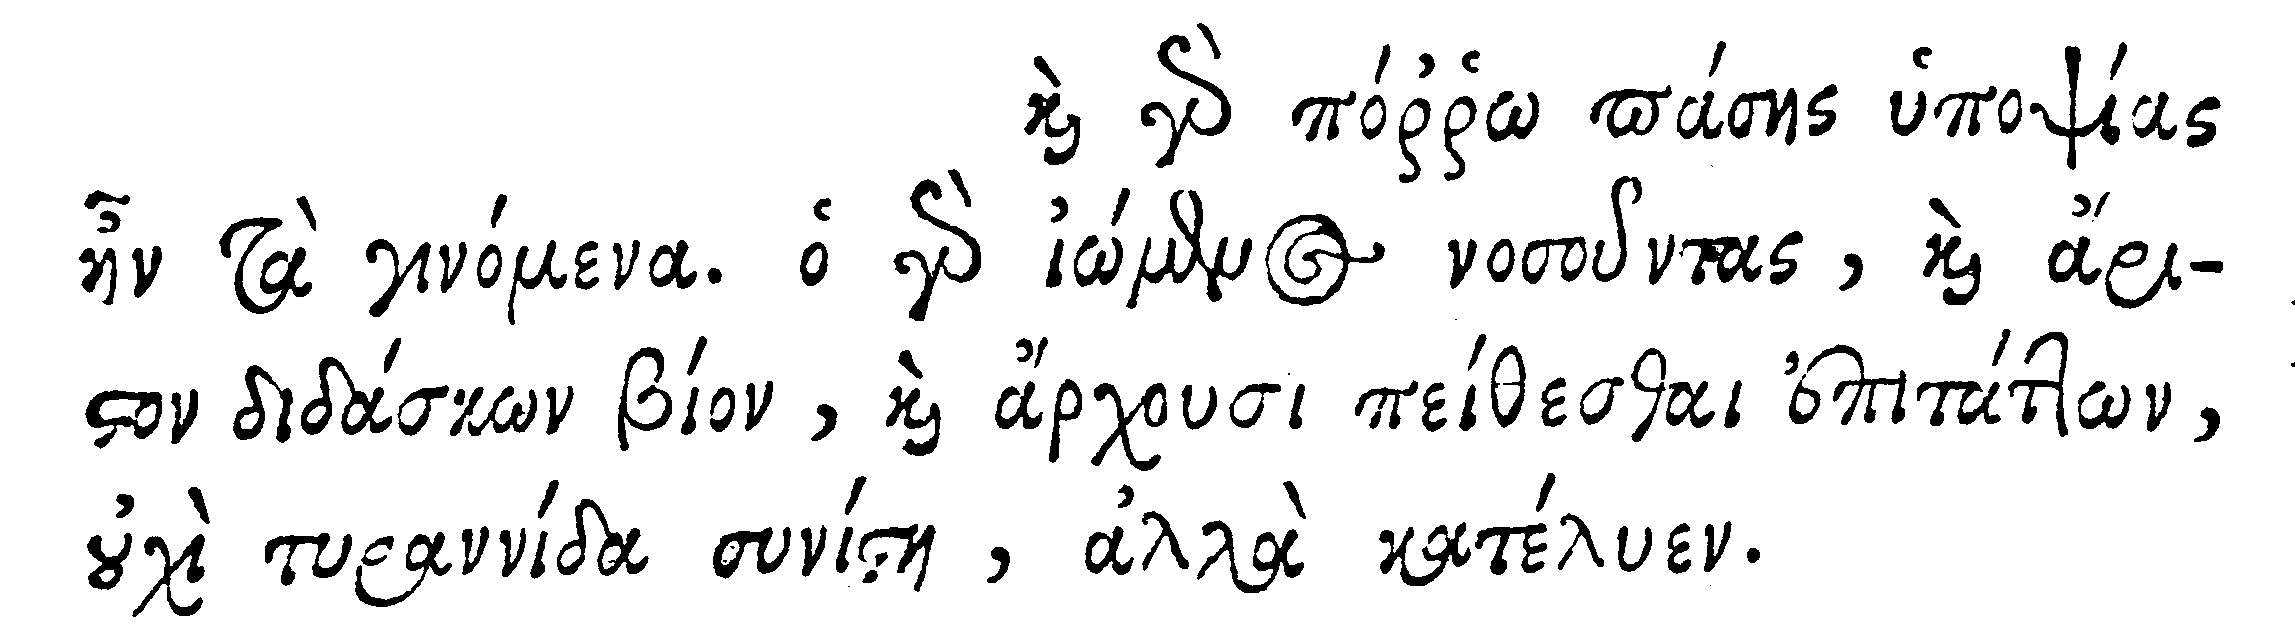 καὶ γὰρ πόῤῥω πάσης ὑποψίας
ἦν τὰ γινόμενα. ὁ γὰρ ἰώμενος νοσοῦντας, καὶ ἄρι-
στον διδάσκων βίον, καὶ ἄρχουσι πείθεσθαι ἐπιτάττων,
οὐχὶ τυραννίδα συνίστη, ἀλλὰ κατέλυεν.